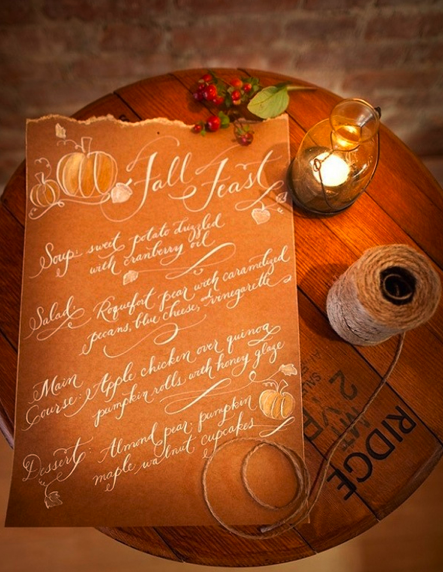 Fall Feast
Soup: sweet potato drizzled
with cranberry oil
Salad: Roquefort pear with caramelized
pecans, blue cheese, vinegarette
Main
Course: Apple chicken over quinoa
pumpkin rolls with honey glaze
Dessert: Almond pear pumpkin
maple walnut cupcakes
RIDGE